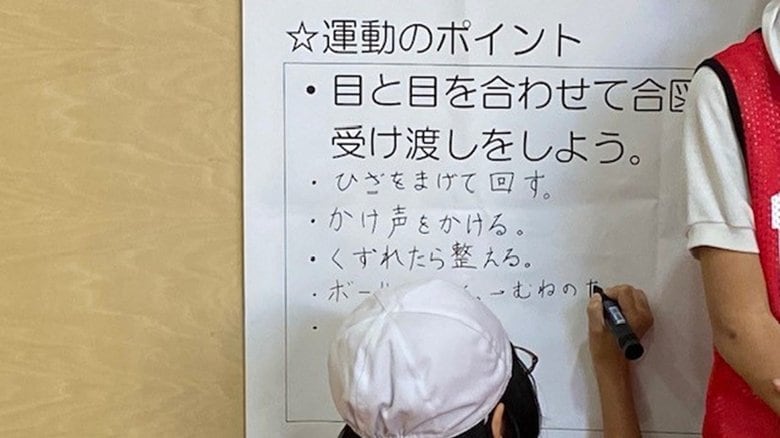 ☆運動のポイント
・目と目を合わせて合図
受け渡しをしよう。
・ひざをまげて回す。
・かけ声をかける。
・くずれたら整える。
・ボー
むねの